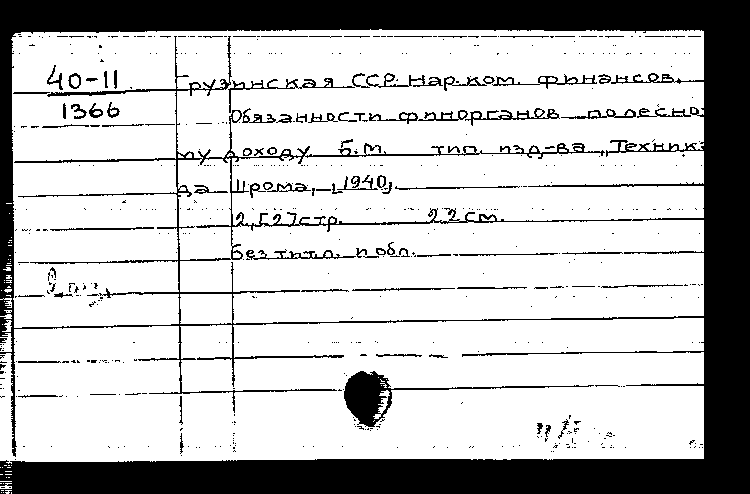 40-11
1366
Грузинская ССР. Нар. ком. финансов.
Обязанности финорганов по лесно
му доходу. Б.м. тип. изд-ва „Техника
да Шрома, [1940].
12, [2] стр. 22 см.
без тит. л. и обл.